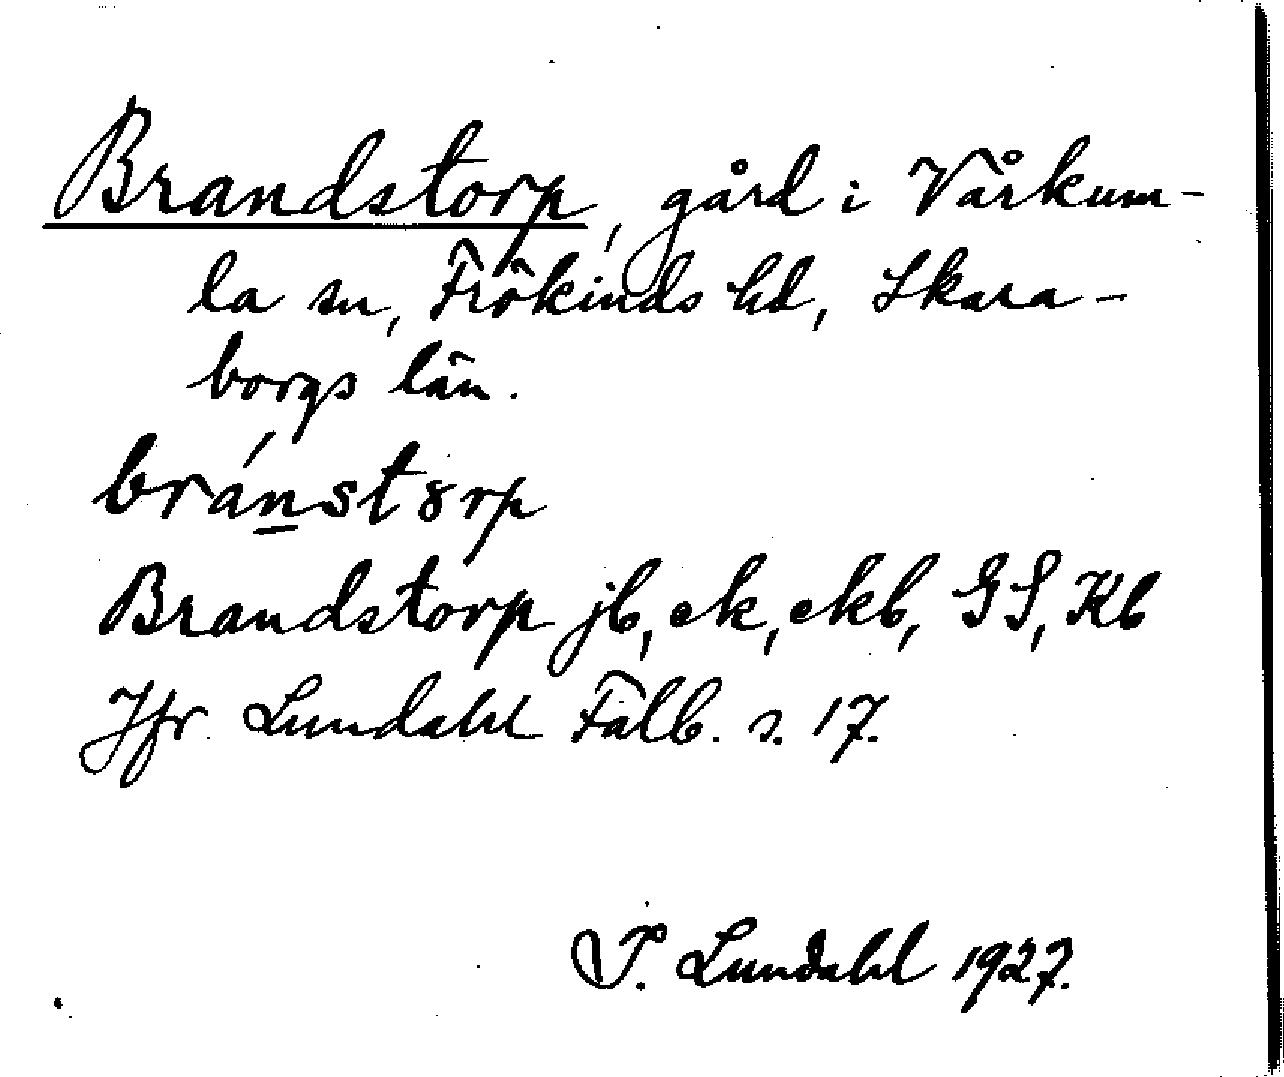 Brandstorp, gård i Vårkum-
la sn, Frökinds hd, Skara-
borgs län.
bránstorp
Brandstorp jb, ek, ekb, GS, Kb
Jfr Lundahl Falb. s. 17.
I. Lundahl 1927.